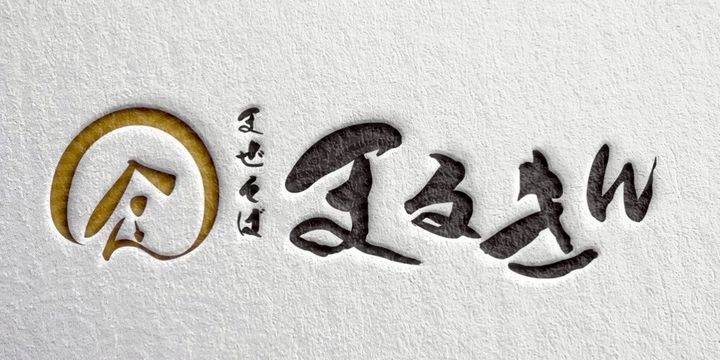 まぜそば
まるきん